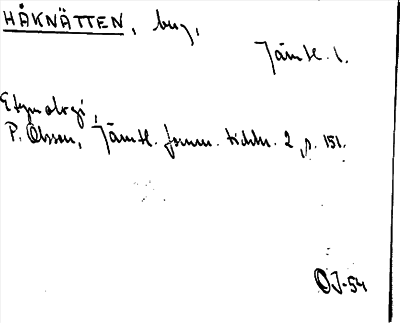 HÅKNÄTTEN, berg,
Jämtl. l.
Etymologi,
P. Olsson, Jämtl. fornm. tidskr. 2 s. 151.
OJ-54